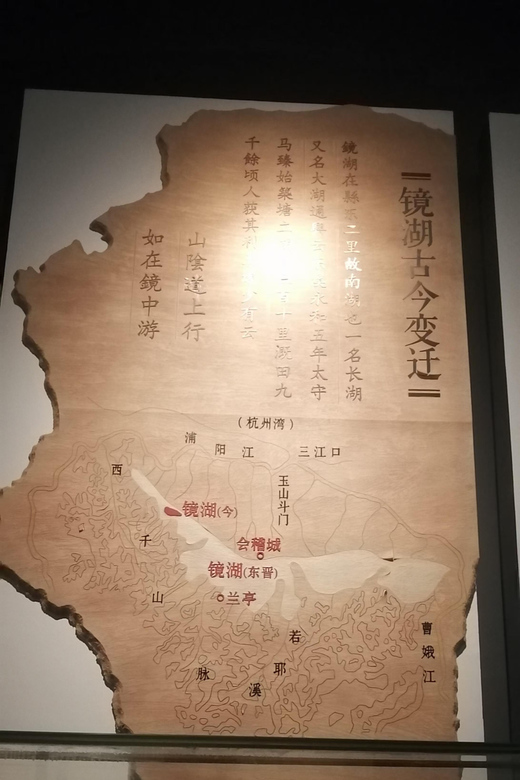 镜湖古今变迁
鏡湖在縣东二里故南湖也一名长湖
又名大湖通 五年太守
马臻始築塘 里溉田九
千餘顷人获其利 云
山陰道上行
如在鏡中游
（杭州湾）
浦阳江
三江口
玉山斗门
西千山脉
镜湖(今)
会稽城
镜湖(东晋)
兰亭
若耶溪
曹娥江